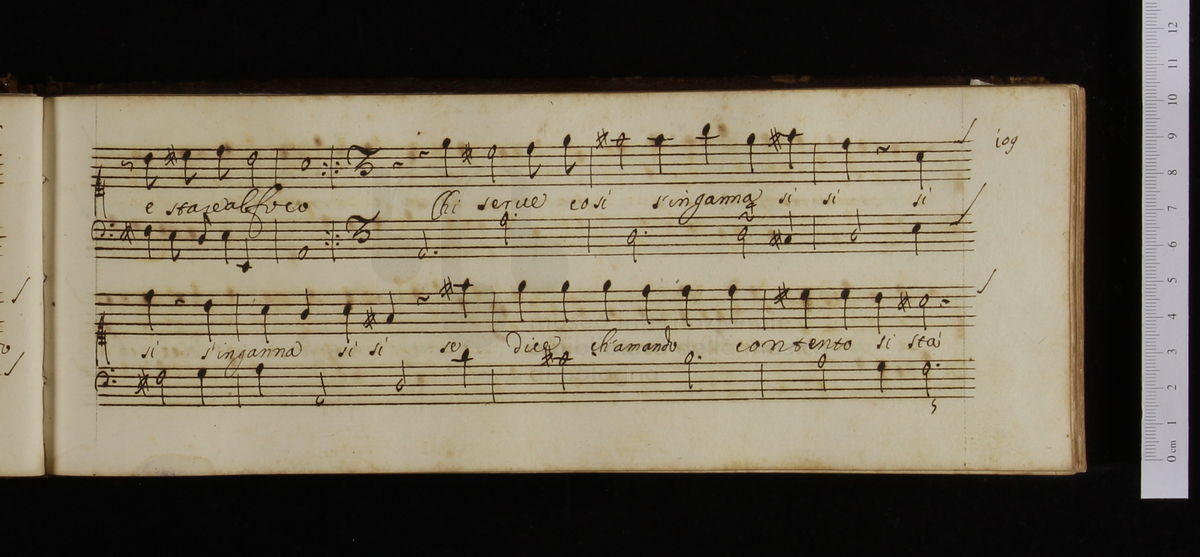 109
e stare al foco Chi serue cosi s'inganna si si si
si s'inganna si si se dice ch'amando contento si stà
0 cm 1 2 3 4 5 6 7 8 9 10 11 12